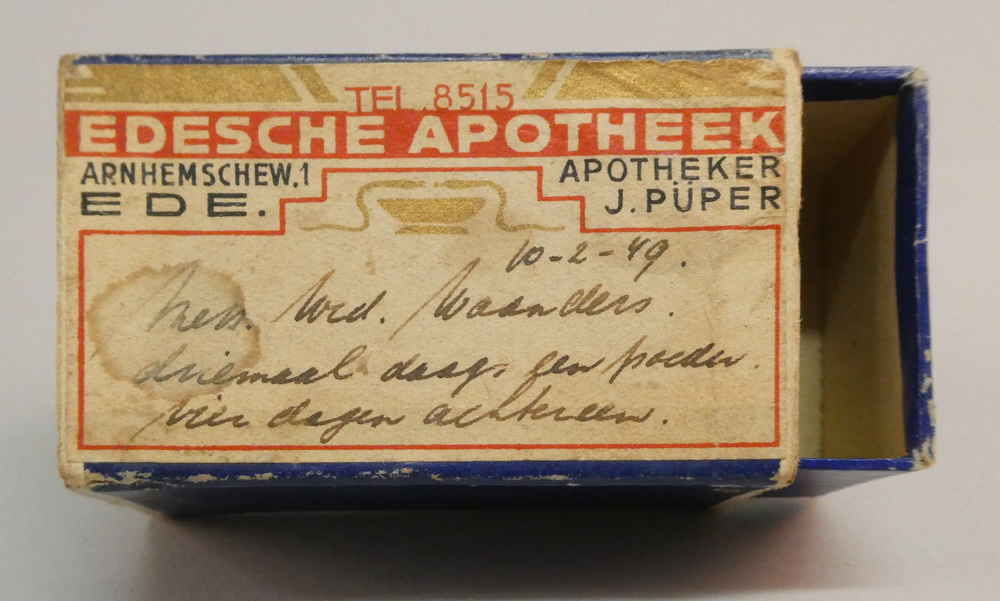 TEL. 8515
EDESCHE APOTHEEK
ARNHEMSCHEW. 1
EDE.
APOTHEKER
J. PÜPER
10-2-49.
Mevr. Wed. Waanders.
driemaal daags een poeder.
vier dagen achtereen.